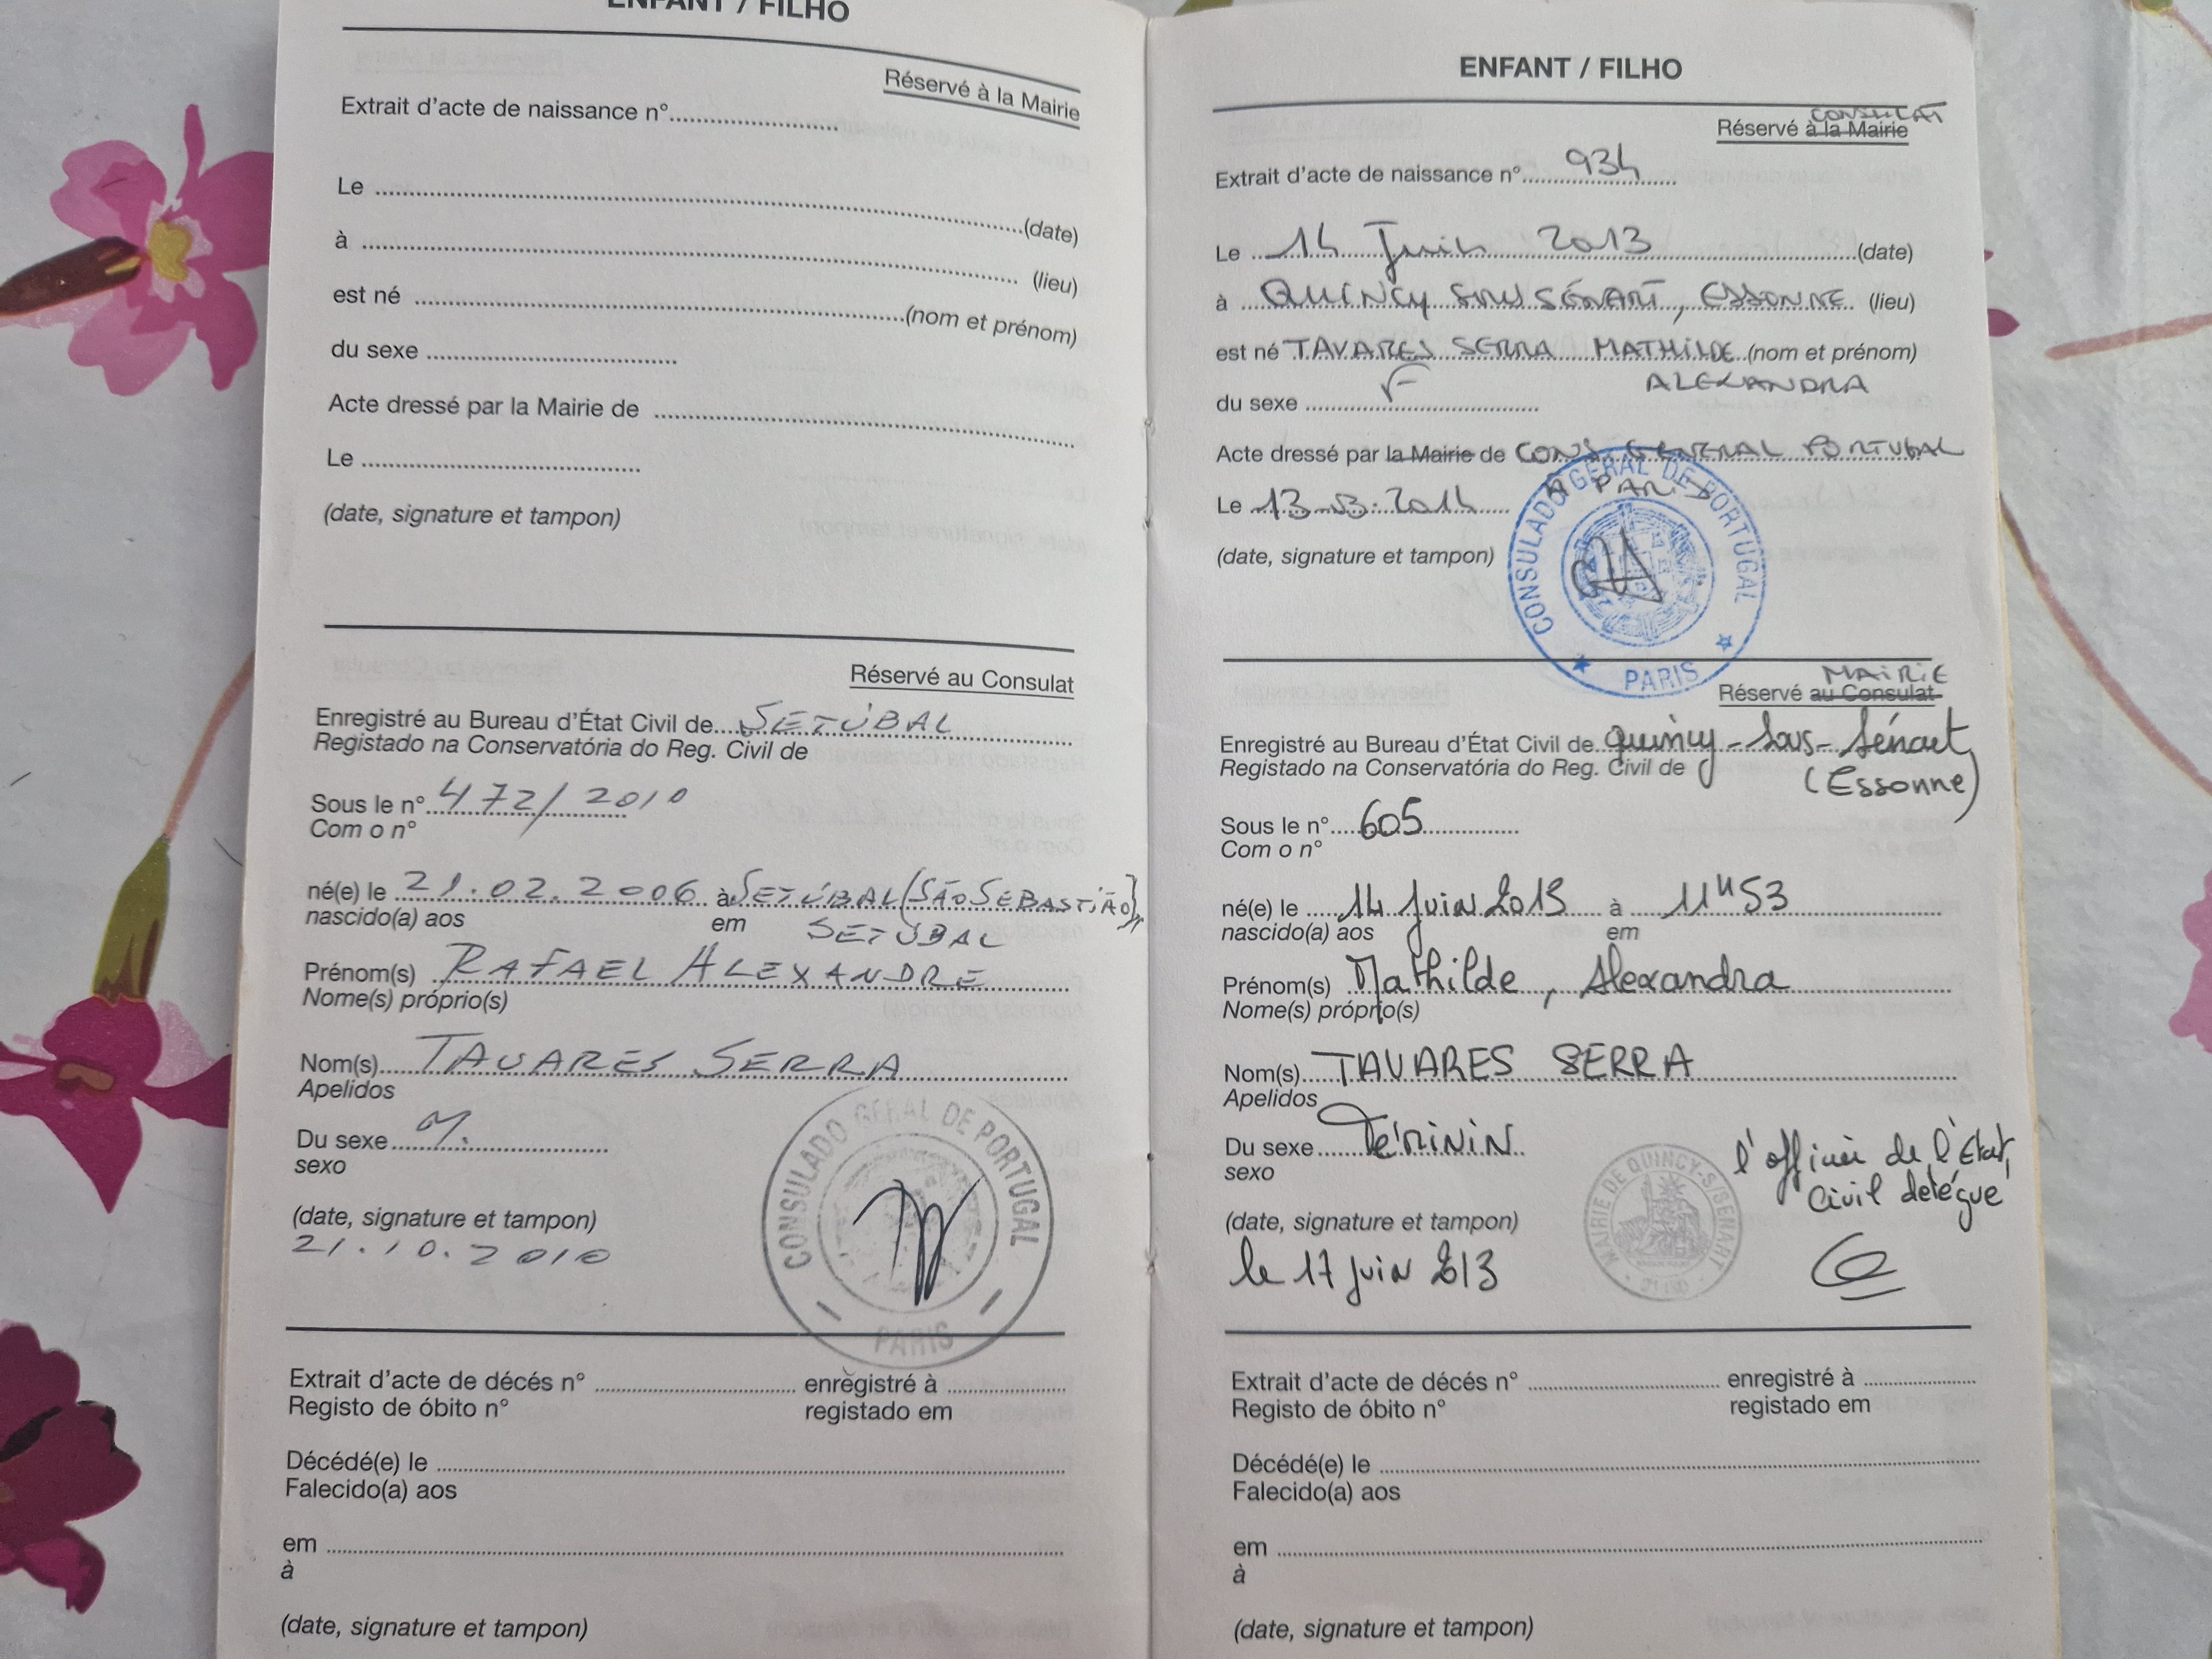 ENFANT / FILHO
Réservé à la Mairie
Extrait d'acte de naissance n°
Le (date)
à (lieu)
est né (nom et prénom)
du sexe
Acte dressé par la Mairie de
Le
(date, signature et tampon)
Réservé au Consulat
Enregistré au Bureau d'État Civil de SETÚBAL
Registado na Conservatória do Reg. Civil de
Sous le n° 472/2010
Com o n°
né(e) le 21.02.2006 à SETÚBAL (SÃO SEBASTIÃO),
nascido(a) aos em SETÚBAL
Prénom(s) RAFAEL ALEXANDRE
Nome(s) próprio(s)
Nom(s) TAVARES SERRA
Apelidos
Du sexe M.
sexo
(date, signature et tampon)
21.10.2010
CONSULADO GERAL DE PORTUGAL
PARIS
Extrait d'acte de décés n° enregistré à
Registo de óbito n° registado em
Décédé(e) le
Falecido(a) aos
em
à
(date, signature et tampon)
ENFANT / FILHO
CONSULAT
Réservé à la Mairie
Extrait d'acte de naissance n° 934
Le 14 Juin 2013 (date)
à QUINCY SOUS SÉNART, ESSONNE (lieu)
est né TAVARES SERRA MATHILDE (nom et prénom)
ALEXANDRA
du sexe F
Acte dressé par la Mairie de CONS. GENERAL PORTUGAL
A PARIS
Le 13.03.2014
(date, signature et tampon)
CONSULADO GERAL DE PORTUGAL
PARIS
MAIRIE
Réservé au Consulat
Enregistré au Bureau d'État Civil de Quincy-Sous-Sénart
Registado na Conservatória do Reg. Civil de (Essonne)
Sous le n° 605
Com o n°
né(e) le 14 juin 2013 à 11H53
nascido(a) aos em
Prénom(s) Mathilde, Alexandra
Nome(s) próprio(s)
Nom(s) TAVARES SERRA
Apelidos
Du sexe FéMININ
sexo
l'officier de l'État
Civil delégué
(date, signature et tampon)
le 17 juin 2013
MAIRIE DE QUINCY-S/SENART
Extrait d'acte de décés n° enregistré à
Registo de óbito n° registado em
Décédé(e) le
Falecido(a) aos
em
à
(date, signature et tampon)